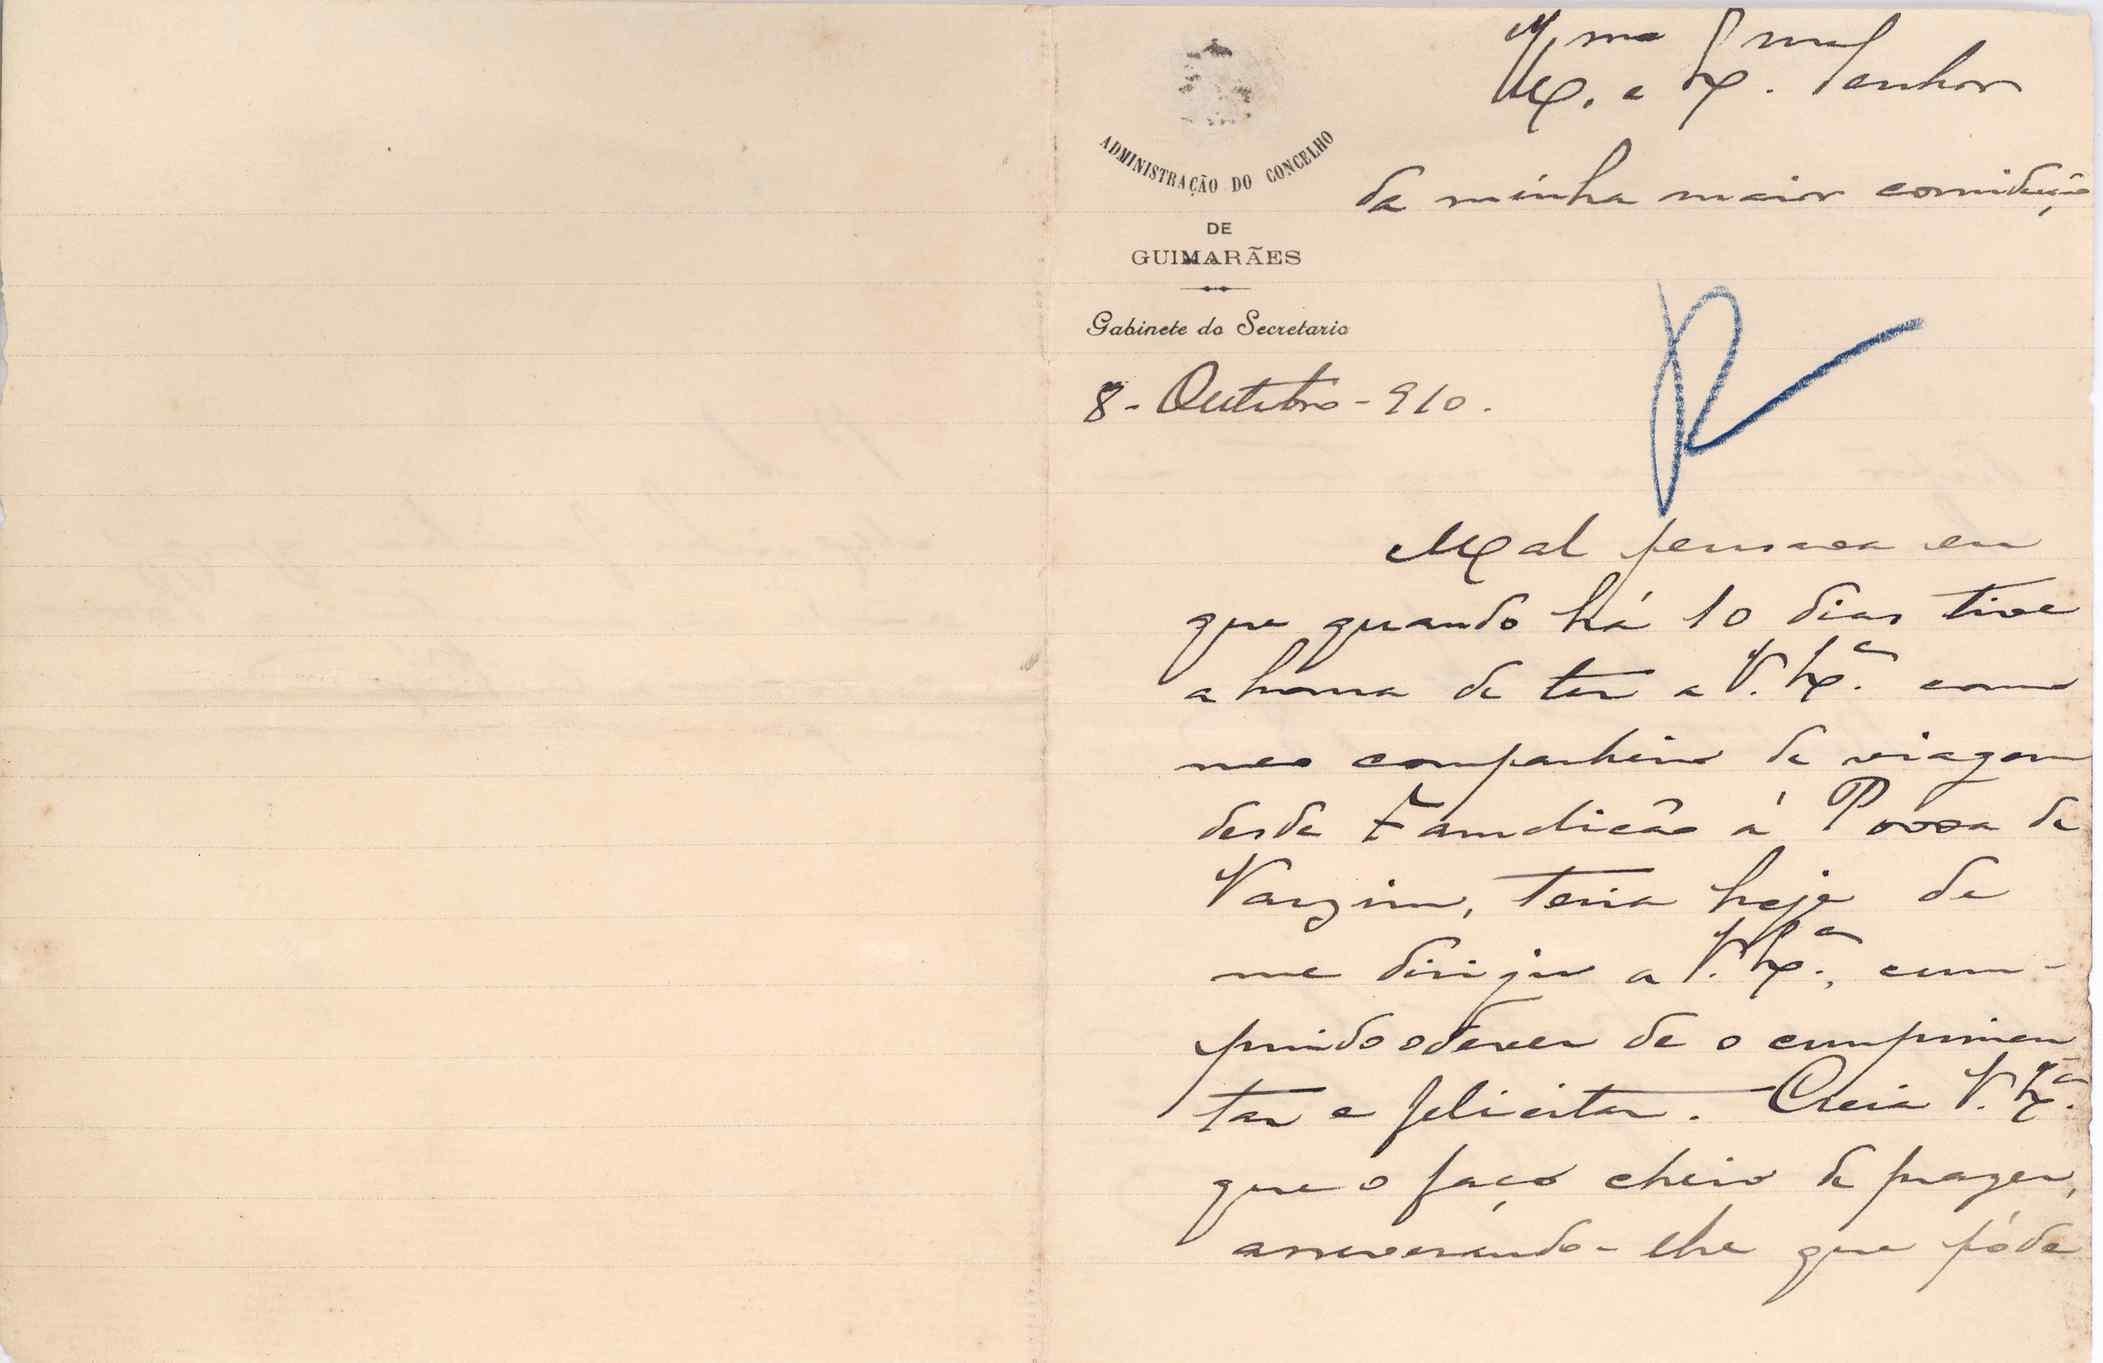 Ill.mo e Ex.mo Senhor
da minha maior consideração
ADMINISTRAÇÃO DO CONCELHO
DE
GUIMARÃES
Gabinete do Secretario
8 - Outubro - 910.
R
Mal pensava eu
que quando há 10 dias tive
a honra de ter a V. Ex.ª como
meu companheiro de viagem
desde Famalicão á Povoa de
Varzim, teria hoje de
me dirigir a V. Ex.ª, cum-
prindo o dever de o cumprimen
tar e felicitar. Creia V. Ex.ª
que o faço cheio de prazer,
asseverando-lhe que póde